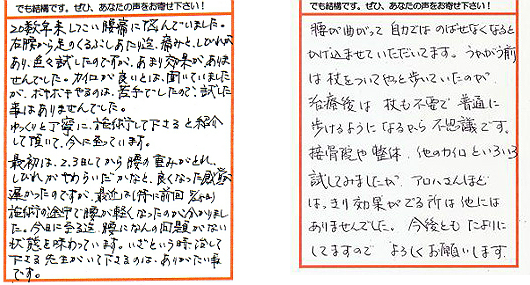 でも結構です。ぜひ、あなたの声をお寄せ下さい！
20数年来しつこい腰痛に悩んでいました。
右腰から足のくるぶしあたり迄、痛みと、しびれが
あり、色々試したのですが、あまり効果がありま
せんでした。カイロが良いとは、聞いていました
が、ボキボキやるのは、苦手でしたので、試した
事はありませんでした。
ゆっくりと丁寧に、施術して下さると紹介
して頂いて、今に至っています。
最初は、2.3日してから腰の重みがとれ、
しびれがやわらいだかなと、良くなった感覚が
遅かったのですが、最近は特に前回
施術の途中で腰が軽くなったのが分かりまし
た。今日に至る迄、腰になんの問題がない
状態を味わっています。いざという時治して
下さる先生がいて下さるのは、ありがたい事
です。
でも結構です。ぜひ、あなたの声をお寄せ下さい！
腰が曲がって自力ではのばせなくなると
かけ込ませていただいてます。うかがう前
は杖をついてやっと歩いていたのが、
治療後は杖も不要で普通に
歩けるようになるから不思議です。
接骨院や整体、他のカイロといろいろ
試してみましたが、アロハさんほど
はっきり効果がでる所は他には
ありませんでした。今後ともたよりに
してますのでよろしくお願いします。